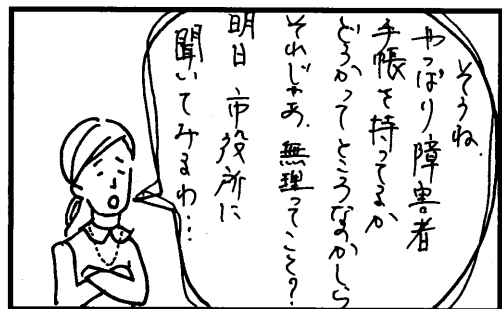 そうね.
やっぱり障害者
手帳を持ってるか
どうかってところなのかしら
それじゃあ.無理ってこと?
明日 市役所に
聞いてみるわ…